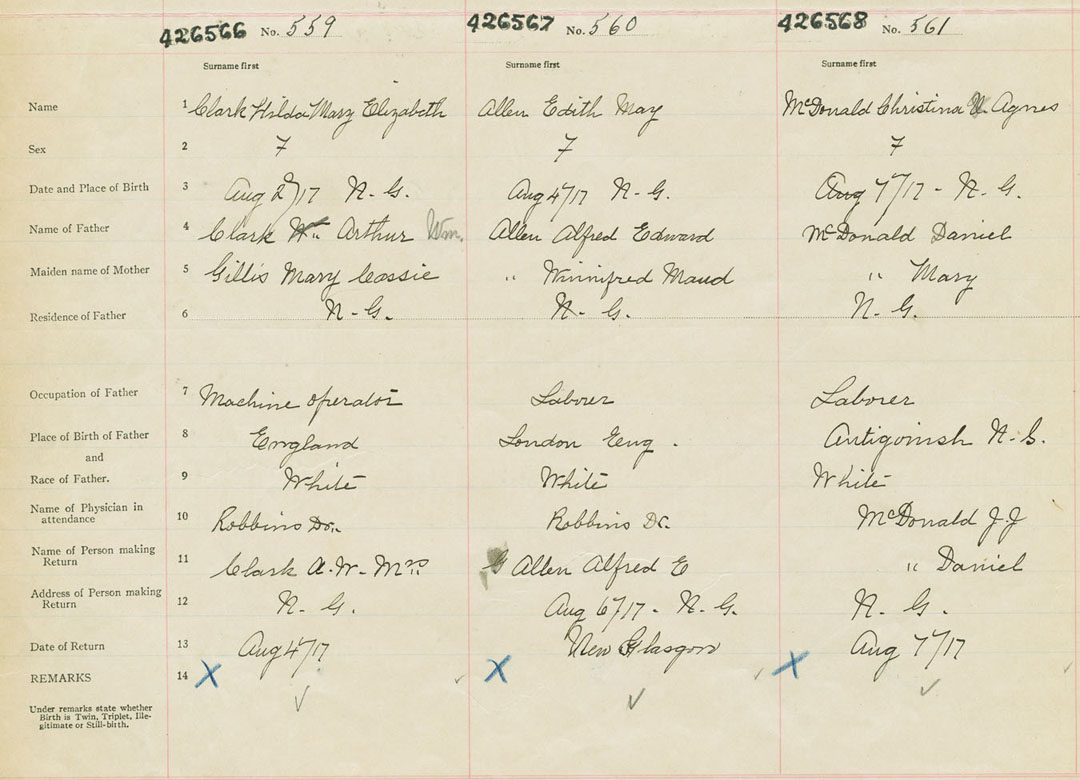 426566 No. 559 426567 No. 560 426568 No. 561
Surname first Surname first Surname first
Name 1 Clark Hilda Mary Elizabeth Allen Edith May McDonald Christina Agnes
Sex 2 F F F
Date and Place of Birth 3 Aug 2/17 N-G. Aug 4/17 N-G. Aug 7/17 - N-G.
Name of Father 4 Clark Wm Arthur Wm. Allen Alfred Edward McDonald Daniel
Maiden name of Mother 5 Gillis Mary Cassie " Winnifred Maud " Mary
Residence of Father 6 N-G. N-G. N-G.
Occupation of Father 7 Machine operator Laborer Laborer
Place of Birth of Father 8 England London Eng. Antigoinsh N-S.
and
Race of Father. 9 White White White
Name of Physician in
attendance 10 Robbins Dr. Robbins Dr. McDonald J.J
Name of Person making
Return 11 Clark A-W-Mrs Allen Alfred E " Daniel
Address of Person making
Return 12 N-G. Aug 6/17 - N-G. N-G.
Date of Return 13 Aug 4/17 New Glasgow Aug 7/17
REMARKS 14 X X X
Under remarks state whether
Birth is Twin, Triplet, Ille-
gitimate or Still-birth.